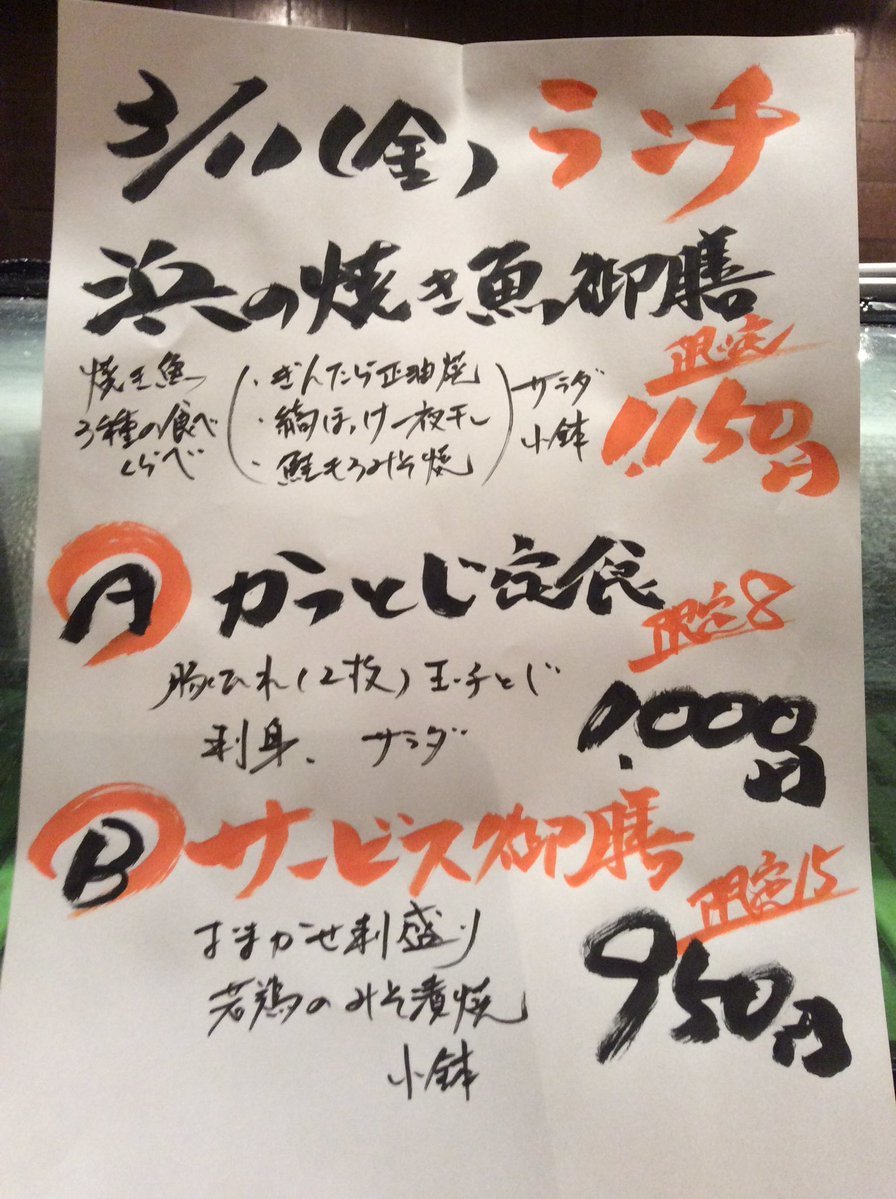 3/11(金)ランチ
浜の焼き魚御膳
限定
1,150円
焼き魚
3種の食べ
くらべ
・ぎんたら正油焼
・縞ほっけ一夜干し
・鮭もろみそ焼
サラダ
小鉢
A かつとじ定食
限定8
1,000円
豚ひれ(2枚)玉チとじ
刺身、サラダ
B サービス御膳
限定15
950円
おまかせ刺盛り
若鶏のみそ漬焼
小鉢